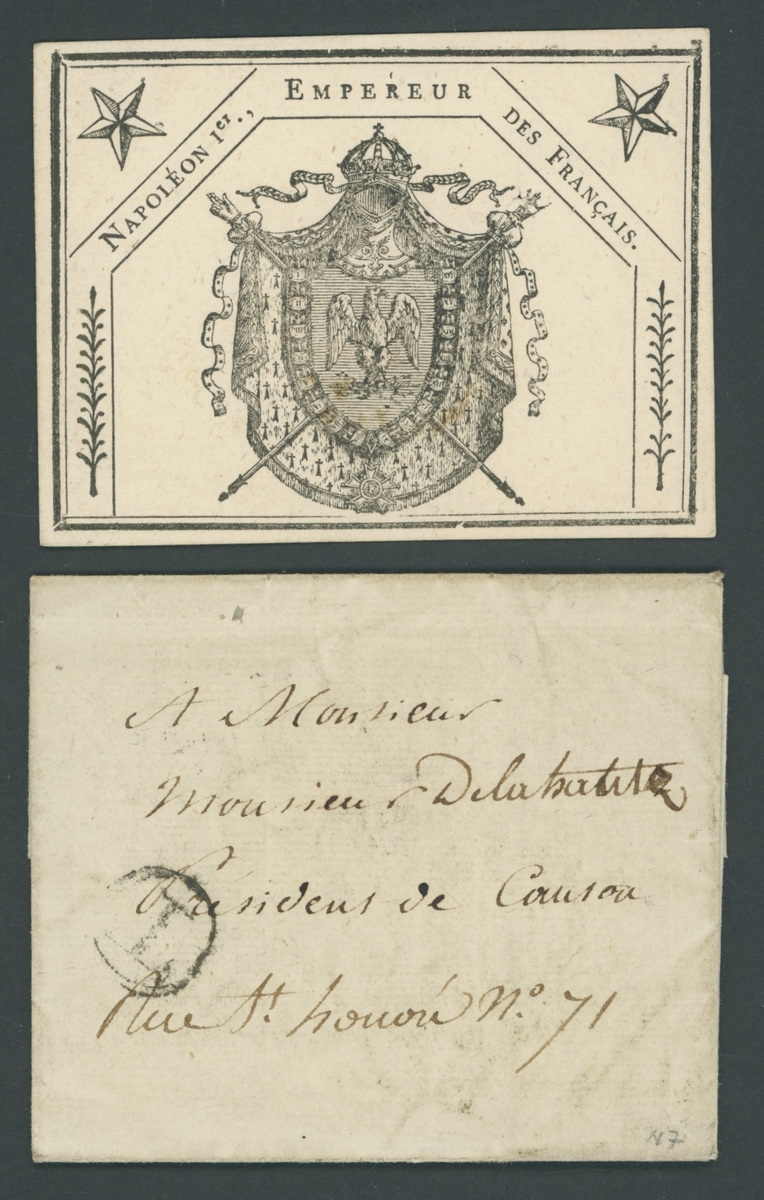 Napoléon Ier.,
Empereur
des Français.
A Monsieur
Monsieur
Président de Canton
Rue St. honoré No. 71
N7